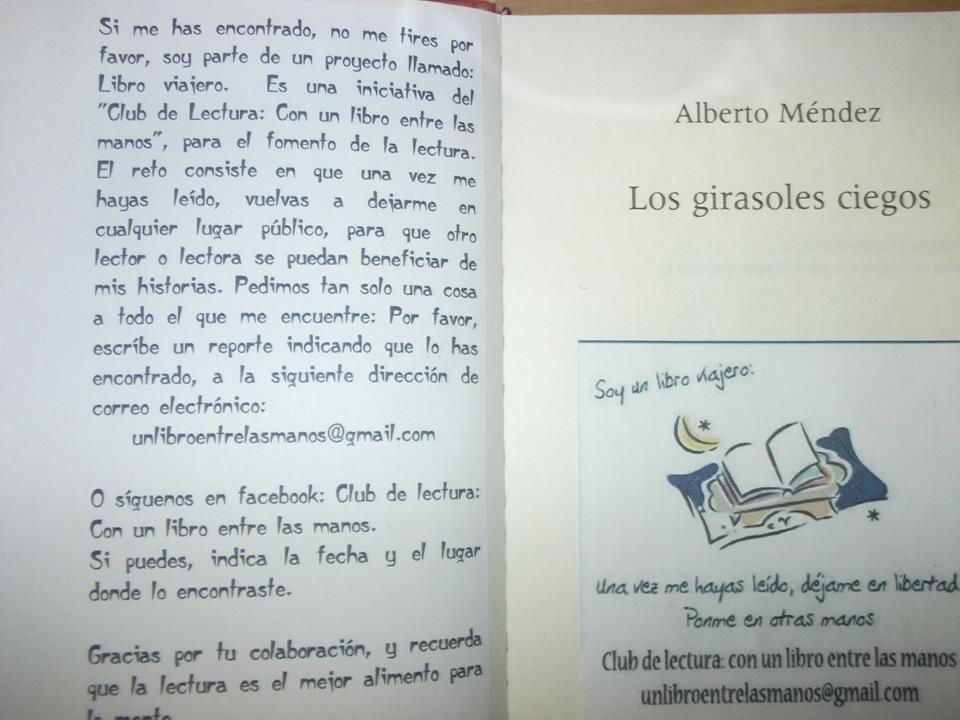 Si me has encontrado, no me tires por
favor, soy parte de un proyecto llamado:
Libro viajero. Es una iniciativa del
"Club de Lectura: Con un libro entre las
manos", para el fomento de la lectura.
El reto consiste en que una vez me
hayas leído, vuelvas a dejarme en
cualquier lugar público, para que otro
lector o lectora se puedan beneficiar de
mis historias. Pedimos tan solo una cosa
a todo el que me encuentre: Por favor,
escríbe un reporte indicando que lo has
encontrado, a la siguiente dirección de
correo electrónico:
unlibroentrelasmanos@gmail.com
O síguenos en facebook: Club de lectura:
Con un libro entre las manos.
Si puedes, indica la fecha y el lugar
donde lo encontraste.
Gracias por tu colaboración, y recuerda
que la lectura es el mejor alimento para
la mente
Alberto Méndez
Los girasoles ciegos
Soy un libro viajero:
Una vez me hayas leído, déjame en libertad
Ponme en otras manos
Club de lectura: con un libro entre las manos
unlibroentrelasmanos@gmail.com